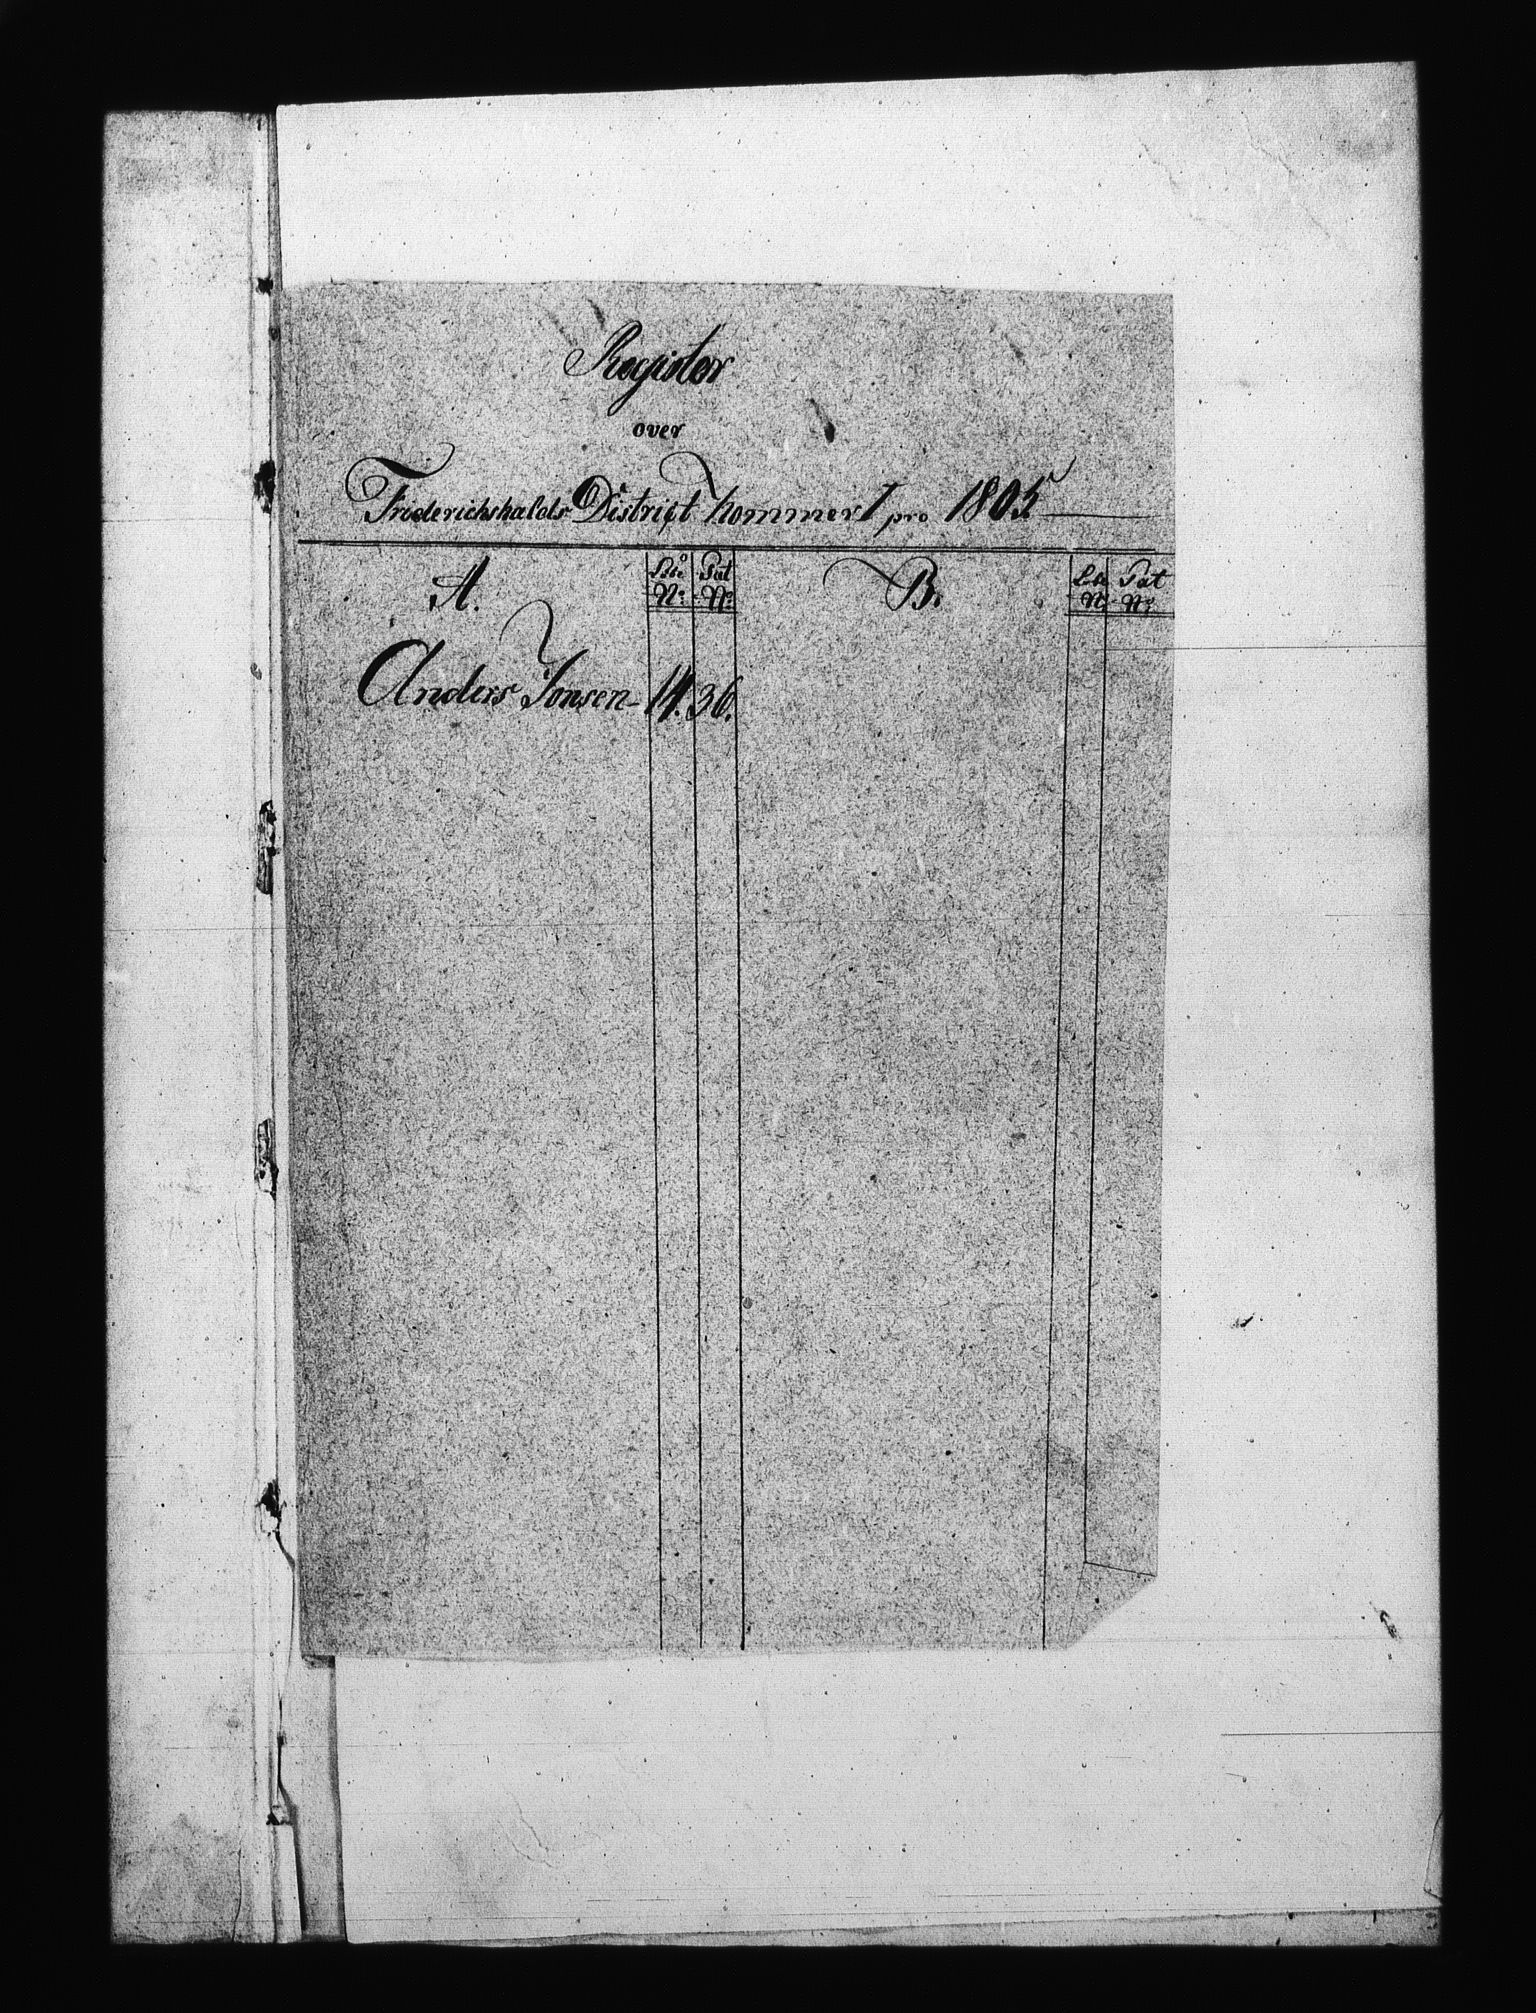 Register
over
Friderichshalds District Nommer I pro 1805
A. Lbe No: Pat No: B. Lbe No Pat No:
Anders Jonsen - 14. 36.